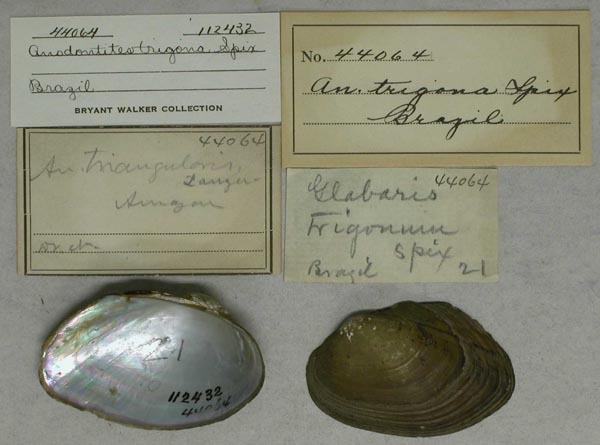 44064 112432
Anodontites trigona Spix
Brazil
BRYANT WALKER COLLECTION
No. 44064
An. trigona Spix
Brazil
44064
An. triangularis,
Amazon
44064
Glabaris
trigonum
Spix
Brazil 21
21
112432
44064